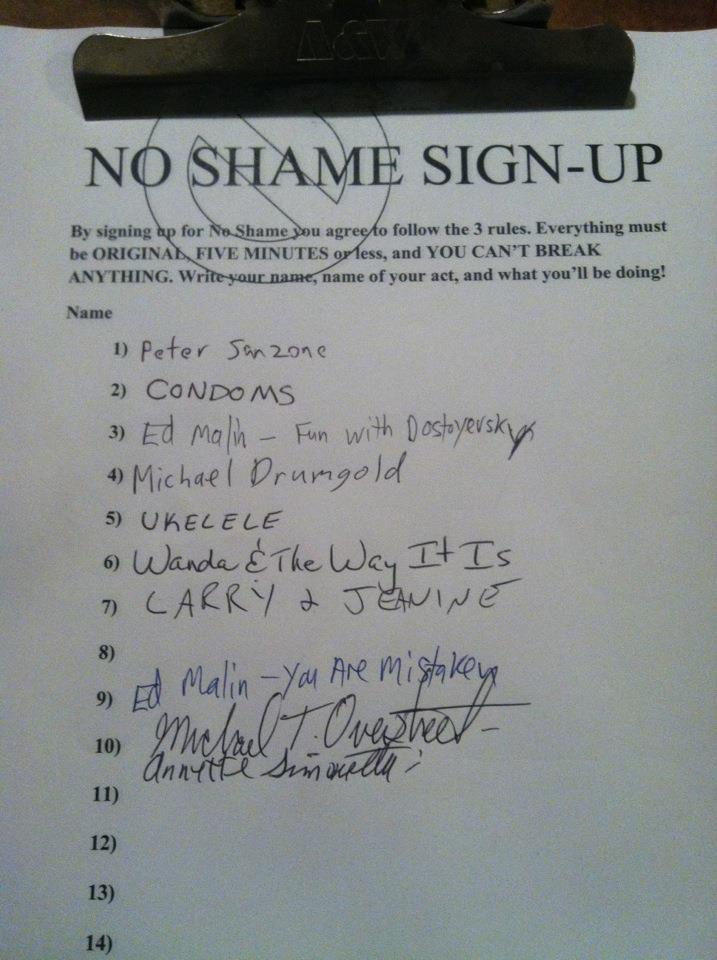 A&W
NO SHAME SIGN-UP
By signing up for No Shame you agree to follow the 3 rules. Everything must
be ORIGINAL, FIVE MINUTES or less, and YOU CAN'T BREAK
ANYTHING. Write your name, name of your act, and what you'll be doing!
Name
1) Peter Sanzone
2) CONDOMS
3) Ed Malin - Fun with Dostoyevsky
4) Michael Drumgold
5) UKELELE
6) Wanda & The Way It Is
7) LARRY & JEANINE
8)
9) Ed Malin - You Are Mistaken
10) Michael T. Overstreet -
Annette Simonetta
11)
12)
13)
14)